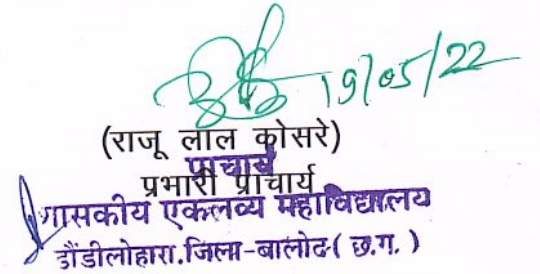 19/05/22
(राजू लाल कोसरे)
प्राचार्य
प्रभारी प्राचार्य
शासकीय एकलव्य महाविद्यालय
डौंडीलोहारा.जिला-बालोद( छ.ग. )